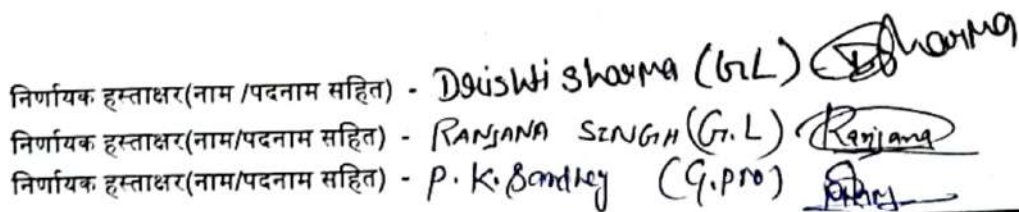 निर्णायक हस्ताक्षर(नाम /पदनाम सहित) - Drishti sharma (G.L) Dsharma
निर्णायक हस्ताक्षर(नाम/पदनाम सहित) - RANJANA SINGH (G.L) Ranjana
निर्णायक हस्ताक्षर(नाम/पदनाम सहित) - P. K. (G.pro)